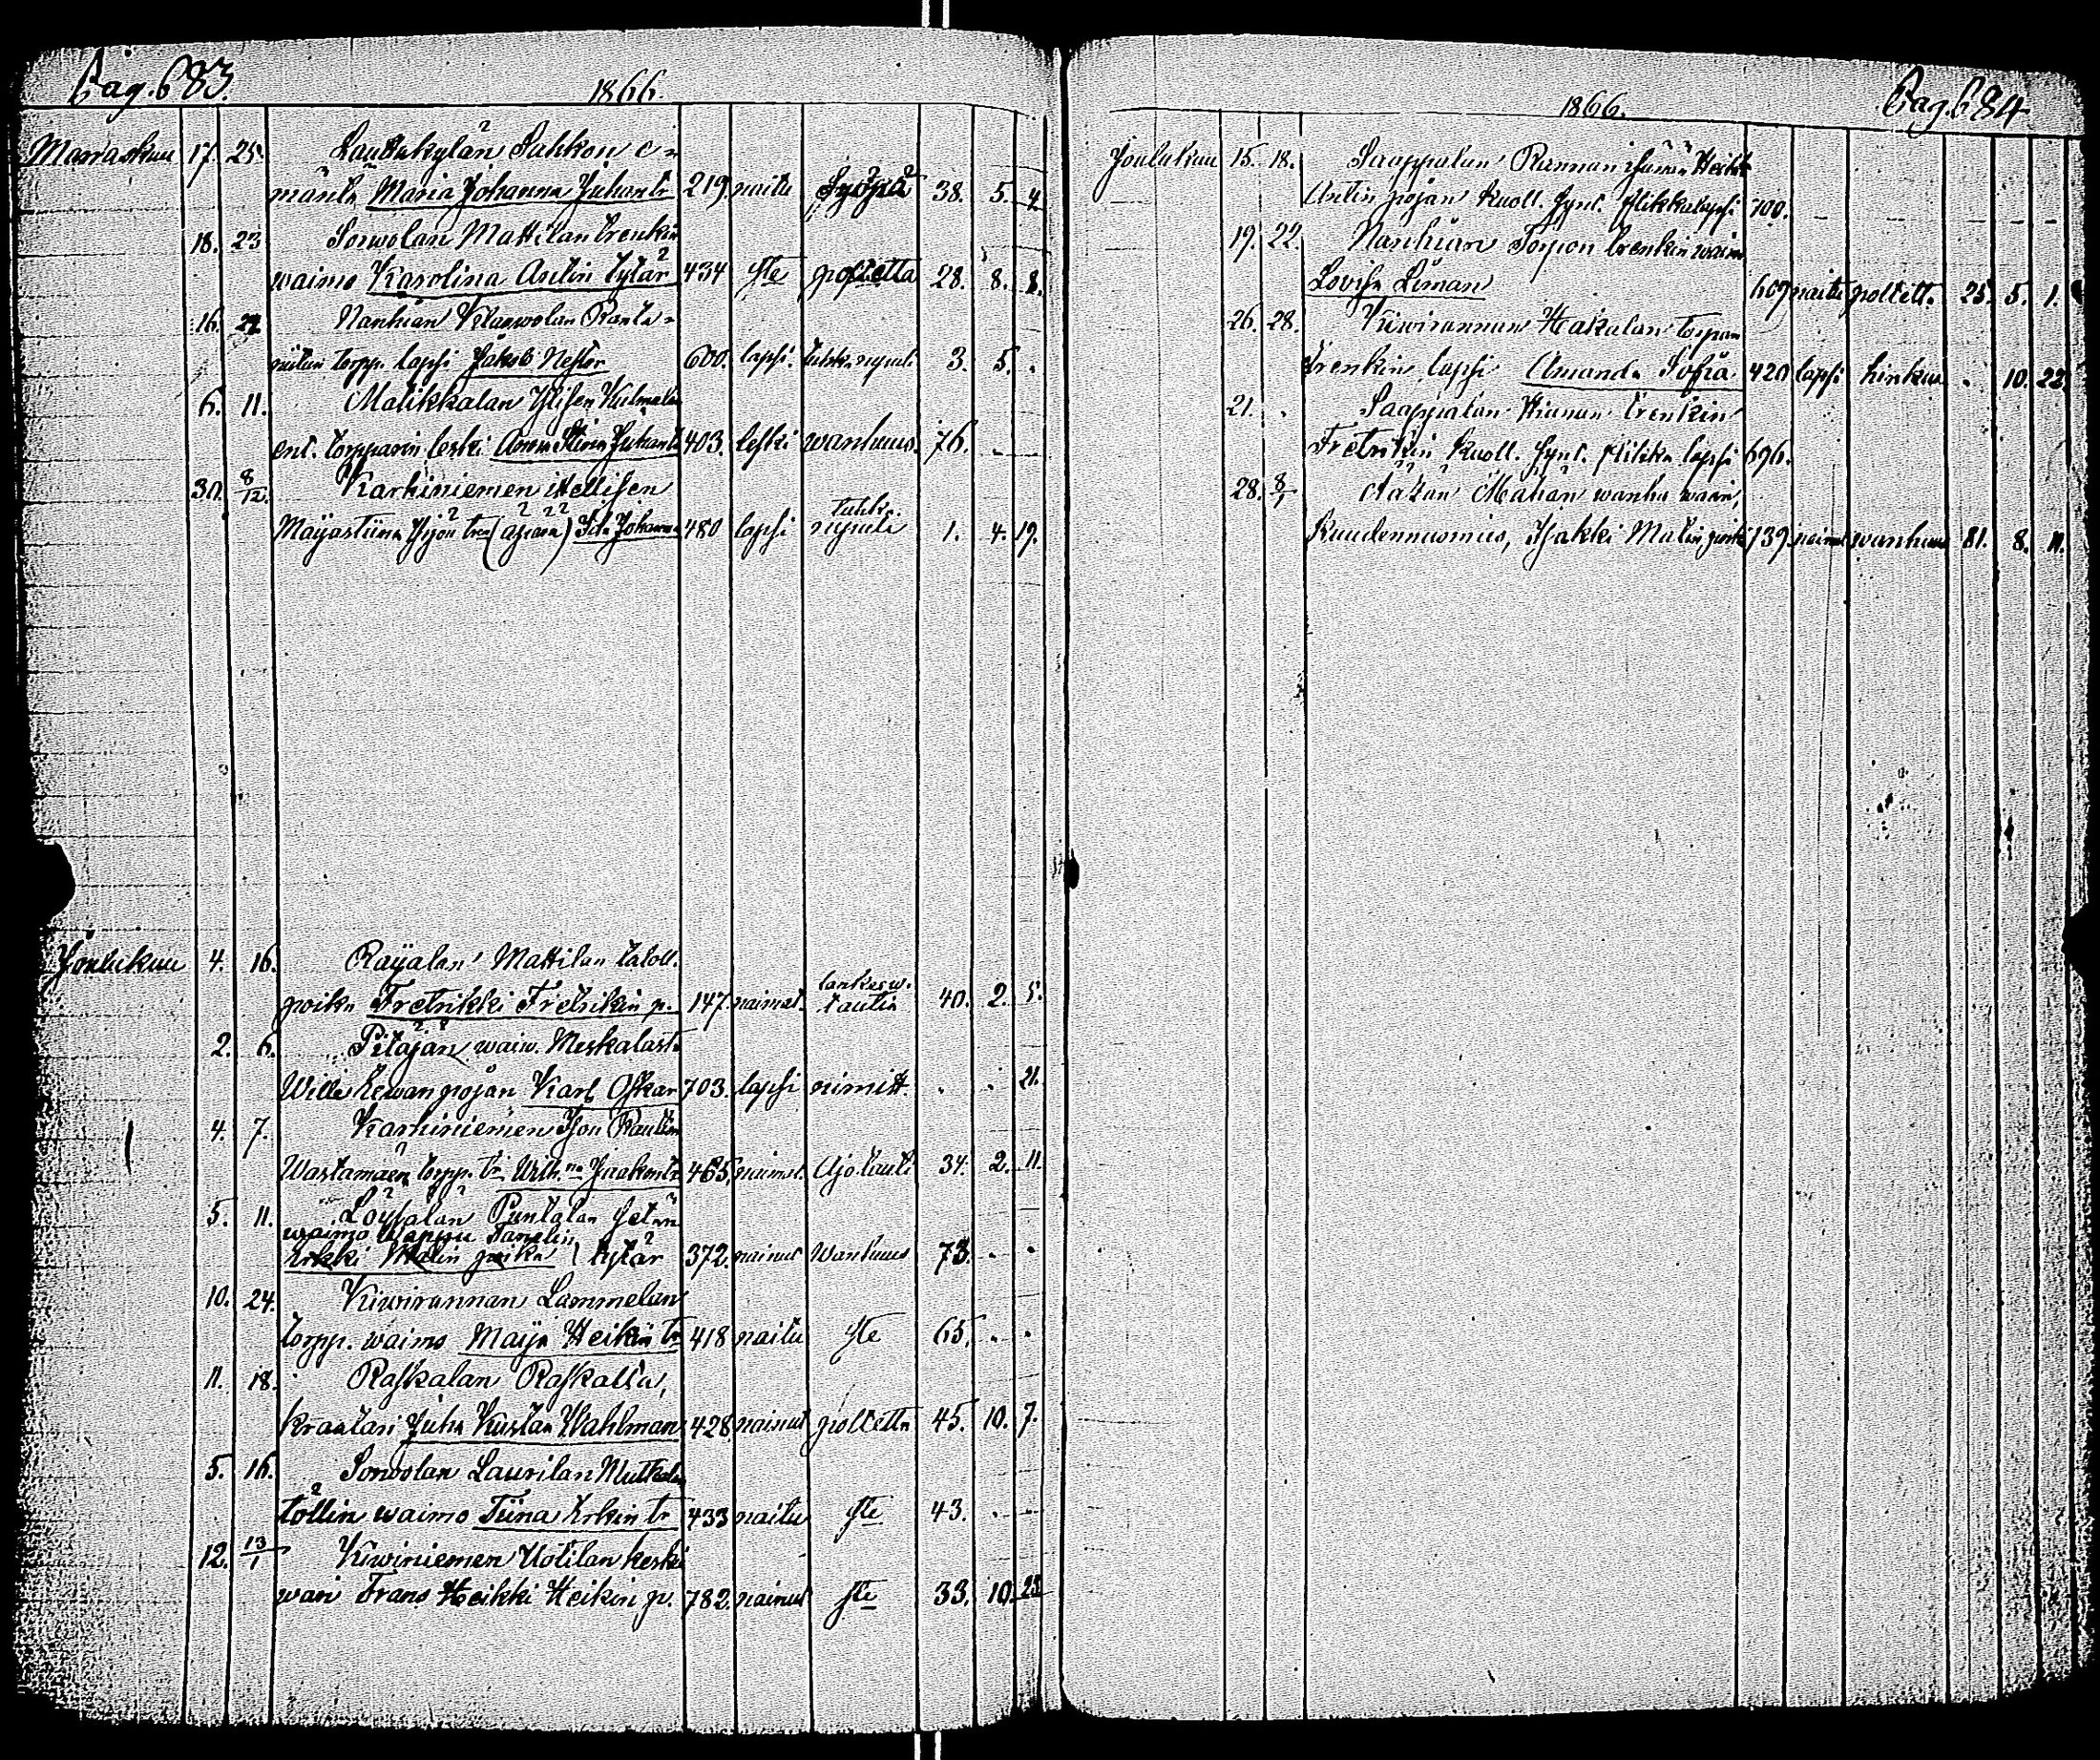 Pag. 683.
1866.
Marraskuu 17. 25. Lautakylän Sahkon e-
männ. Maria Johanna Juhantr 219. naitu Syöpä 38. 5. 4.
18. 23 Sorwolan Mattilan trenkin
waimo Karolina Antin tytär 434 ste poltetta 28. 8. 8.
16. 22 Nanhian Ranta-
torpp. lapsi Jakob Nestor 600. lapsi. tuhk. rupuli 3. 5. .
6. 11. Mälikkälän Ylisen Kulmalan
ent. torpparin leski Anna Stina Juhantr 403. leski wanhuus. 76. .
30. 8/12. Karhiniemen itellisen
Maijastiina Yrjön tren (äpärä) Ida Johanna 480 lapsi tuhk. rupuli 1. 4. 19.
Joulukuu 4. 16. Raijalan Mattilan taloll.
poika Fretrikki Fretrikin p. 147. naimat. lankeew. tautia 40. 2. 5.
2. 6. Pitäjän waiw. Meskalast.
Wille Lewanpojan Karl Oskar 703. lapsi nimitt. . . 21.
4. 7. Karhiniemen Ison Rautin
Wastamäen torpp. tr Wilh.na Jaakontr 465. naimat. Ajo tauti 34. 2. 11.
5. 11. Löysälän Puntalan setän
waimo Wappu Tanelin
Erkki Matin poika tytär 372. nainut Wanhuus 73. . .
10. 24. Kiwirannan Lammelan
torpp. waimo Maija Heikin tr 418 naitu ste 65. . .
11. 18. Raskalan Raskalla,
kraatari Juha Kustaa Wahlman 428. nainut poltetta 45. 10. 7.
5. 16. Sorwolan Laurilan Mutkalan
töllin waimo Tiina Erkin tr 433 naitu ste 43. . .
12. 13/1 Kiwiniemen Uotilan keski
wari Frans Heikki Heikin p. 782. nainut ste 33. 10. 23
1866.
Pag. 684
Joulukuu 15. 18. Saappalan Rannan isännän Heikk
Antin pojan kuoll. synt. flikkalapsi 700. — — — — —
19. 22. Nanhian Torpon trenkin waim
Lovisa Liman 607 naitu poltett. 25. 5. 1.
26. 28. Kiwirannan Hakalan torpan
trenkin lapsi Amanda Sofia 420 lapsi hinkuu . 10. 22.
21. . Saappalan Hiunun trenkin
Fretrikin kuoll. synt. flikka lapsi 696.
28. 8/1 wanha waari,
Kuudennusmies, Isakki Matin poika 739. nainut wanhuus 81. 8. 11.